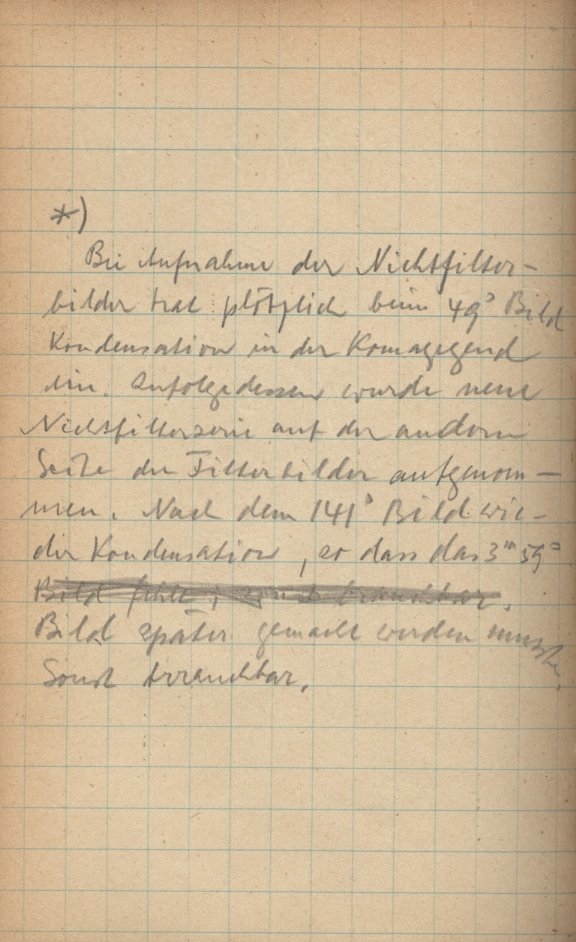 *)
Bei Aufnahme der Nichtfilter-
bilder trat plötzlich beim 49ˢ Bild
Kondensation in der Komagegend
ein. Infolgedessen wurde neue
Nichtfilterserie auf der andern
Seite der Filterbilder aufgenom-
men. Nach dem 141ˢ Bild wie-
der Kondensation, so dass das 3ᵐ 59ˢ
Bild fehlt; sonst brauchbar.
Bild später gemacht werden musste.
Sonst brauchbar.